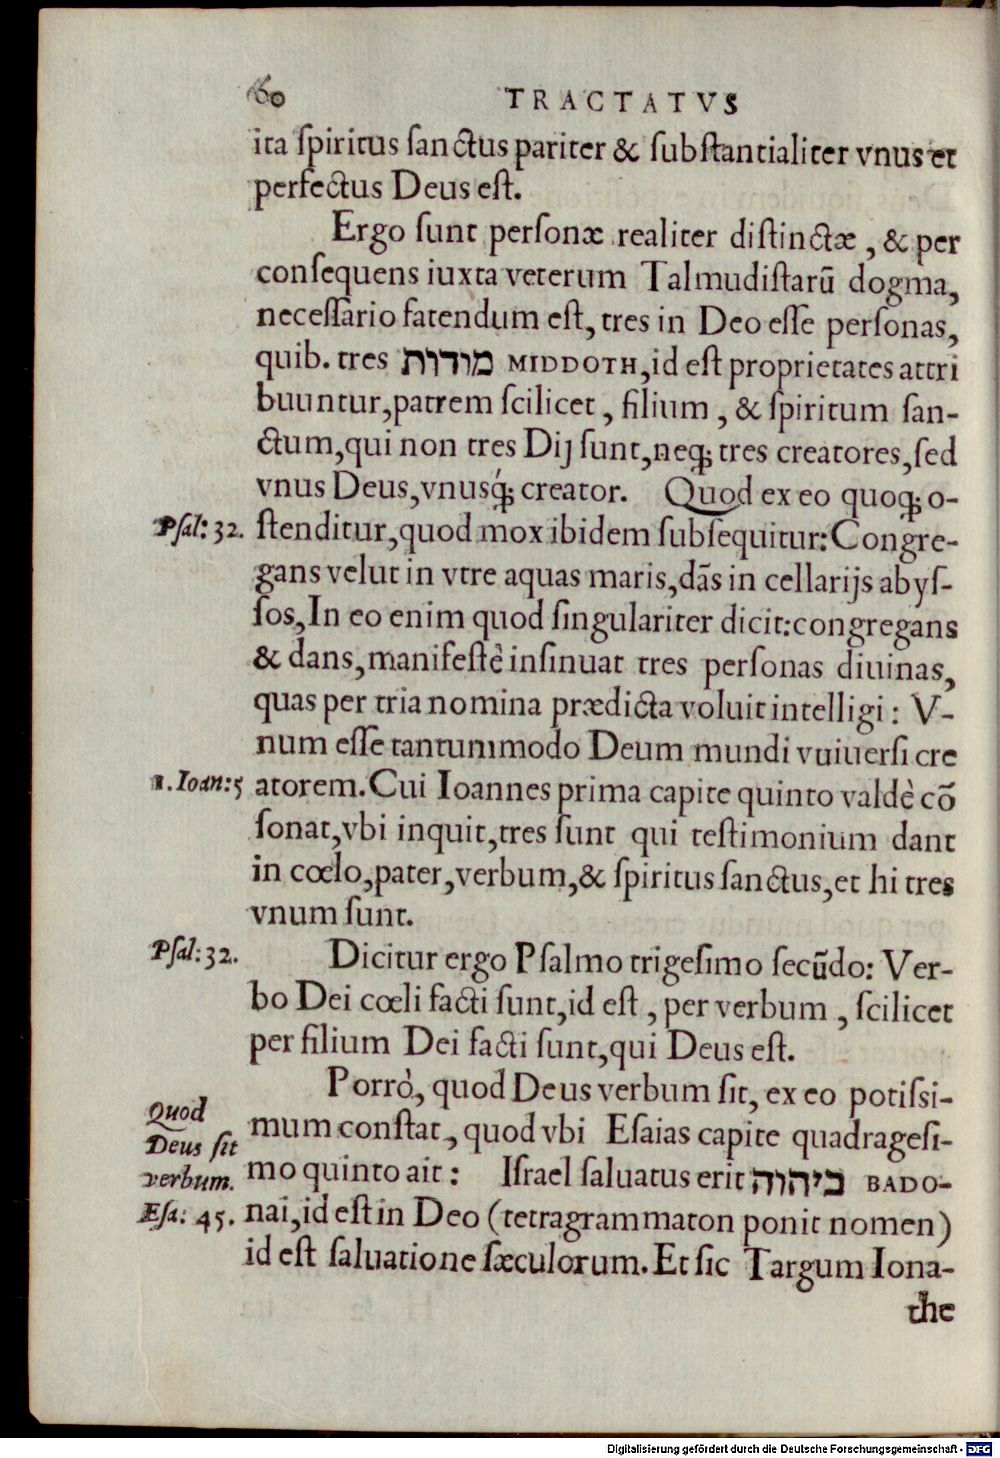 60 TRACTATVS
ita ſpiritus ſanctus pariter & ſubſtantialiter vnus et
perfectus Deus eſt.
Ergo ſunt perſonæ realiter diſtinctæ, & per
conſequens iuxta veterum Talmudiſtarũ dogma,
neceſſario fatendum eſt, tres in Deo eſſe perſonas,
quib. tres מודות MIDDOTH, id eſt proprietates attri
buuntur, patrem ſcilicet, filium, & ſpiritum ſan-
ctum, qui non tres Dij ſunt, neq; tres creatores, ſed
vnus Deus, vnusq́; creator. Quod ex eo quoq; o-
Pſal: 32. ſtenditur, quod mox ibidem ſubſequitur: Congre-
gans velut in vtre aquas maris, dãs in cellarijs abyſ-
ſos, In eo enim quod ſingulariter dicit: congregans
& dans, manifeſtè inſinuat tres perſonas diuinas,
quas per tria nomina prædicta voluit intelligi: V-
num eſſe tantummodo Deum mundi vuiuerſi cre
1. Ioan: 5 atorem. Cui Ioannes prima capite quinto valdè cõ
ſonat, vbi inquit, tres ſunt qui teſtimonium dant
in cœlo, pater, verbum, & ſpiritus ſanctus, et hi tres
vnum ſunt.
Pſal: 32. Dicitur ergo Pſalmo trigeſimo ſecũdo: Ver-
bo Dei cœli facti ſunt, id eſt, per verbum, ſcilicet
per filium Dei facti ſunt, qui Deus eſt.
Porrò, quod Deus verbum ſit, ex eo potiſsi-
Quod
Deus ſit
verbum.
Eſa: 45.
mum conſtat, quod vbi Eſaias capite quadrageſi-
mo quinto ait: Iſrael ſaluatus erit ביהוה BADO-
nai, id eſt in Deo (tetragrammaton ponit nomen)
id eſt ſaluatione ſæculorum. Et ſic Targum Iona-
the
Digitalisierung gefördert durch die Deutsche Forschungsgemeinschaft - DFG